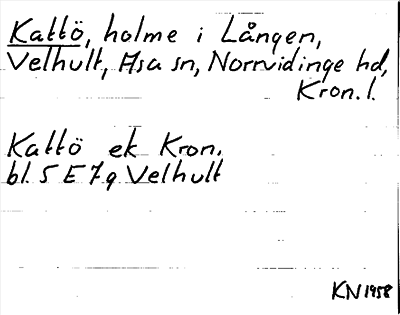 Kattö, holme i Lången,
Velhult, Asa sn, Norrvidinge hd,
Kron. l.
Kattö ek Kron.
bl. 5 E 7 g Velhult
KN 1958